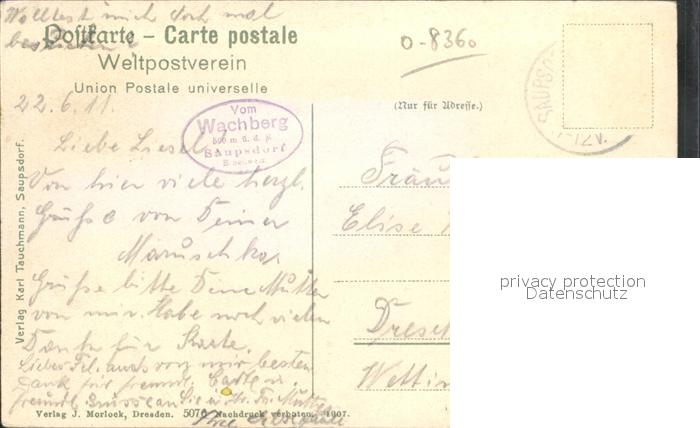 Wolltest mich doch mal
besuchen?
Postkarte – Carte postale
Weltpostverein
Union Postale universelle
0-8360
22.6.11.
Vom
Wachberg
Saupsdorf
(Nur für Adresse.)
Liebe Liesel!
Von hier viele herzl.
Grüße von Deiner
Maruschka.
Grüße bitte Deine Mutter
von mir. Habe noch vielen
Dank für Karte.
Liebes Frl. auch von mir besten
Dank für freundl. Karte u.
freundl. Grüsse an Sie u. Ihr. Fr. Mutter
Ihre
Elise
Verlag Karl Tauchmann, Saupsdorf.
Verlag J. Morlock, Dresden. 5076 Nachdruck verboten. 1907.
privacy protection
Datenschutz